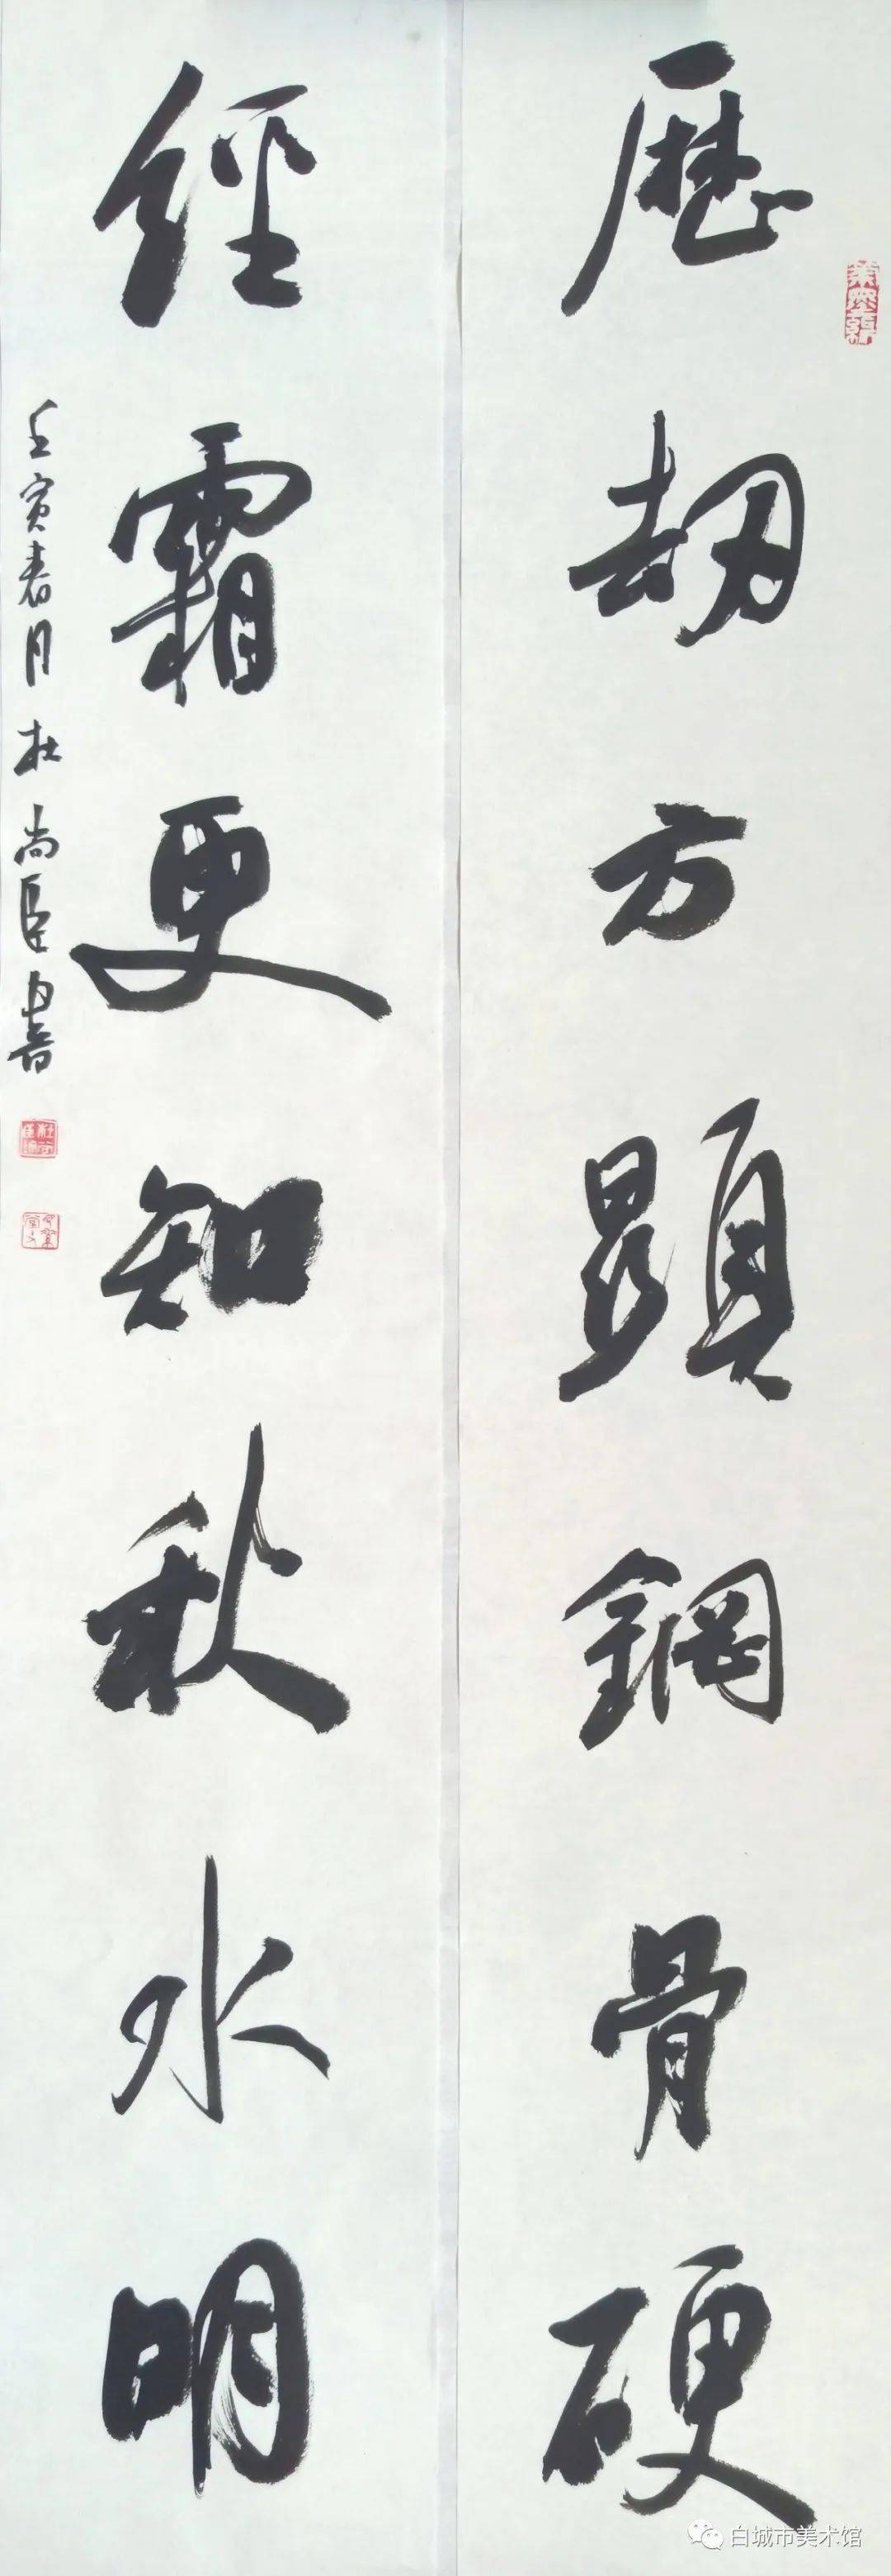 歷劫方顯鋼骨硬
經霜更知秋水明
壬寅春月杜尚臣書
白城市美术馆